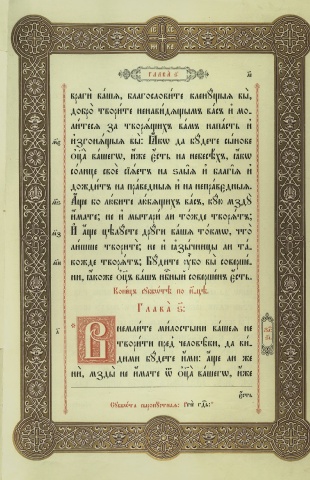 ГЛАВА̀ є҃.
врагѝ ва́шѧ, благослови́те клену́щыѧ вы̀,
добро̀ твори́те ненави́дѧщымъ ва́съ и҆ мо-
ли́тесѧ за творѧ́щихъ ва́мъ напа́сть и҆
и҆згонѧ́щыѧ вы̀: Ꙗ҆́кѡ да бу́дете сы́нове
ѻ҆ц҃а̀ ва́шегѡ, и҆́же є҆́сть на нб҃сѣ́хъ, ꙗ҆́кѡ
со́лнце своѐ сїѧ́етъ на злы̑ѧ и҆ благі̑ѧ и҆
дожди́тъ на пра́вєдныѧ и҆ на непра́вєдныѧ.
А҆́ще бо лю́бите лю́бѧщихъ ва́съ, ку́ю мзду̀
и҆́мате; не и҆ мытари́ ли то́жде творѧ́тъ;
И҆ а҆́ще цѣлу́ете дру́ги ва́шѧ то́кмѡ, что̀
ли́шше творитѐ; не и҆ ꙗ҆зы̑чницы ли та́-
кожде творѧ́тъ; Бу́дите ᲂу҆̀бо вы̀ соверше́-
ни, ꙗ҆́коже ѻ҆ц҃ъ ва́шъ нбⷭ҇ный соверше́нъ є҆́сть.
Коне́цъ
ГЛАВА̀ ѕ҃.
Внемли́те ми́лостыни ва́шеѧ не
твори́ти пред̾ человѣ̑ки, да ви́-
ди́ми бу́дете и҆́ми: а҆́ще ли же
нѝ, мзды̀ не и҆́мате ѿ ѻ҆ц҃а̀ ва́шегѡ, и҆́же
є҆́сть